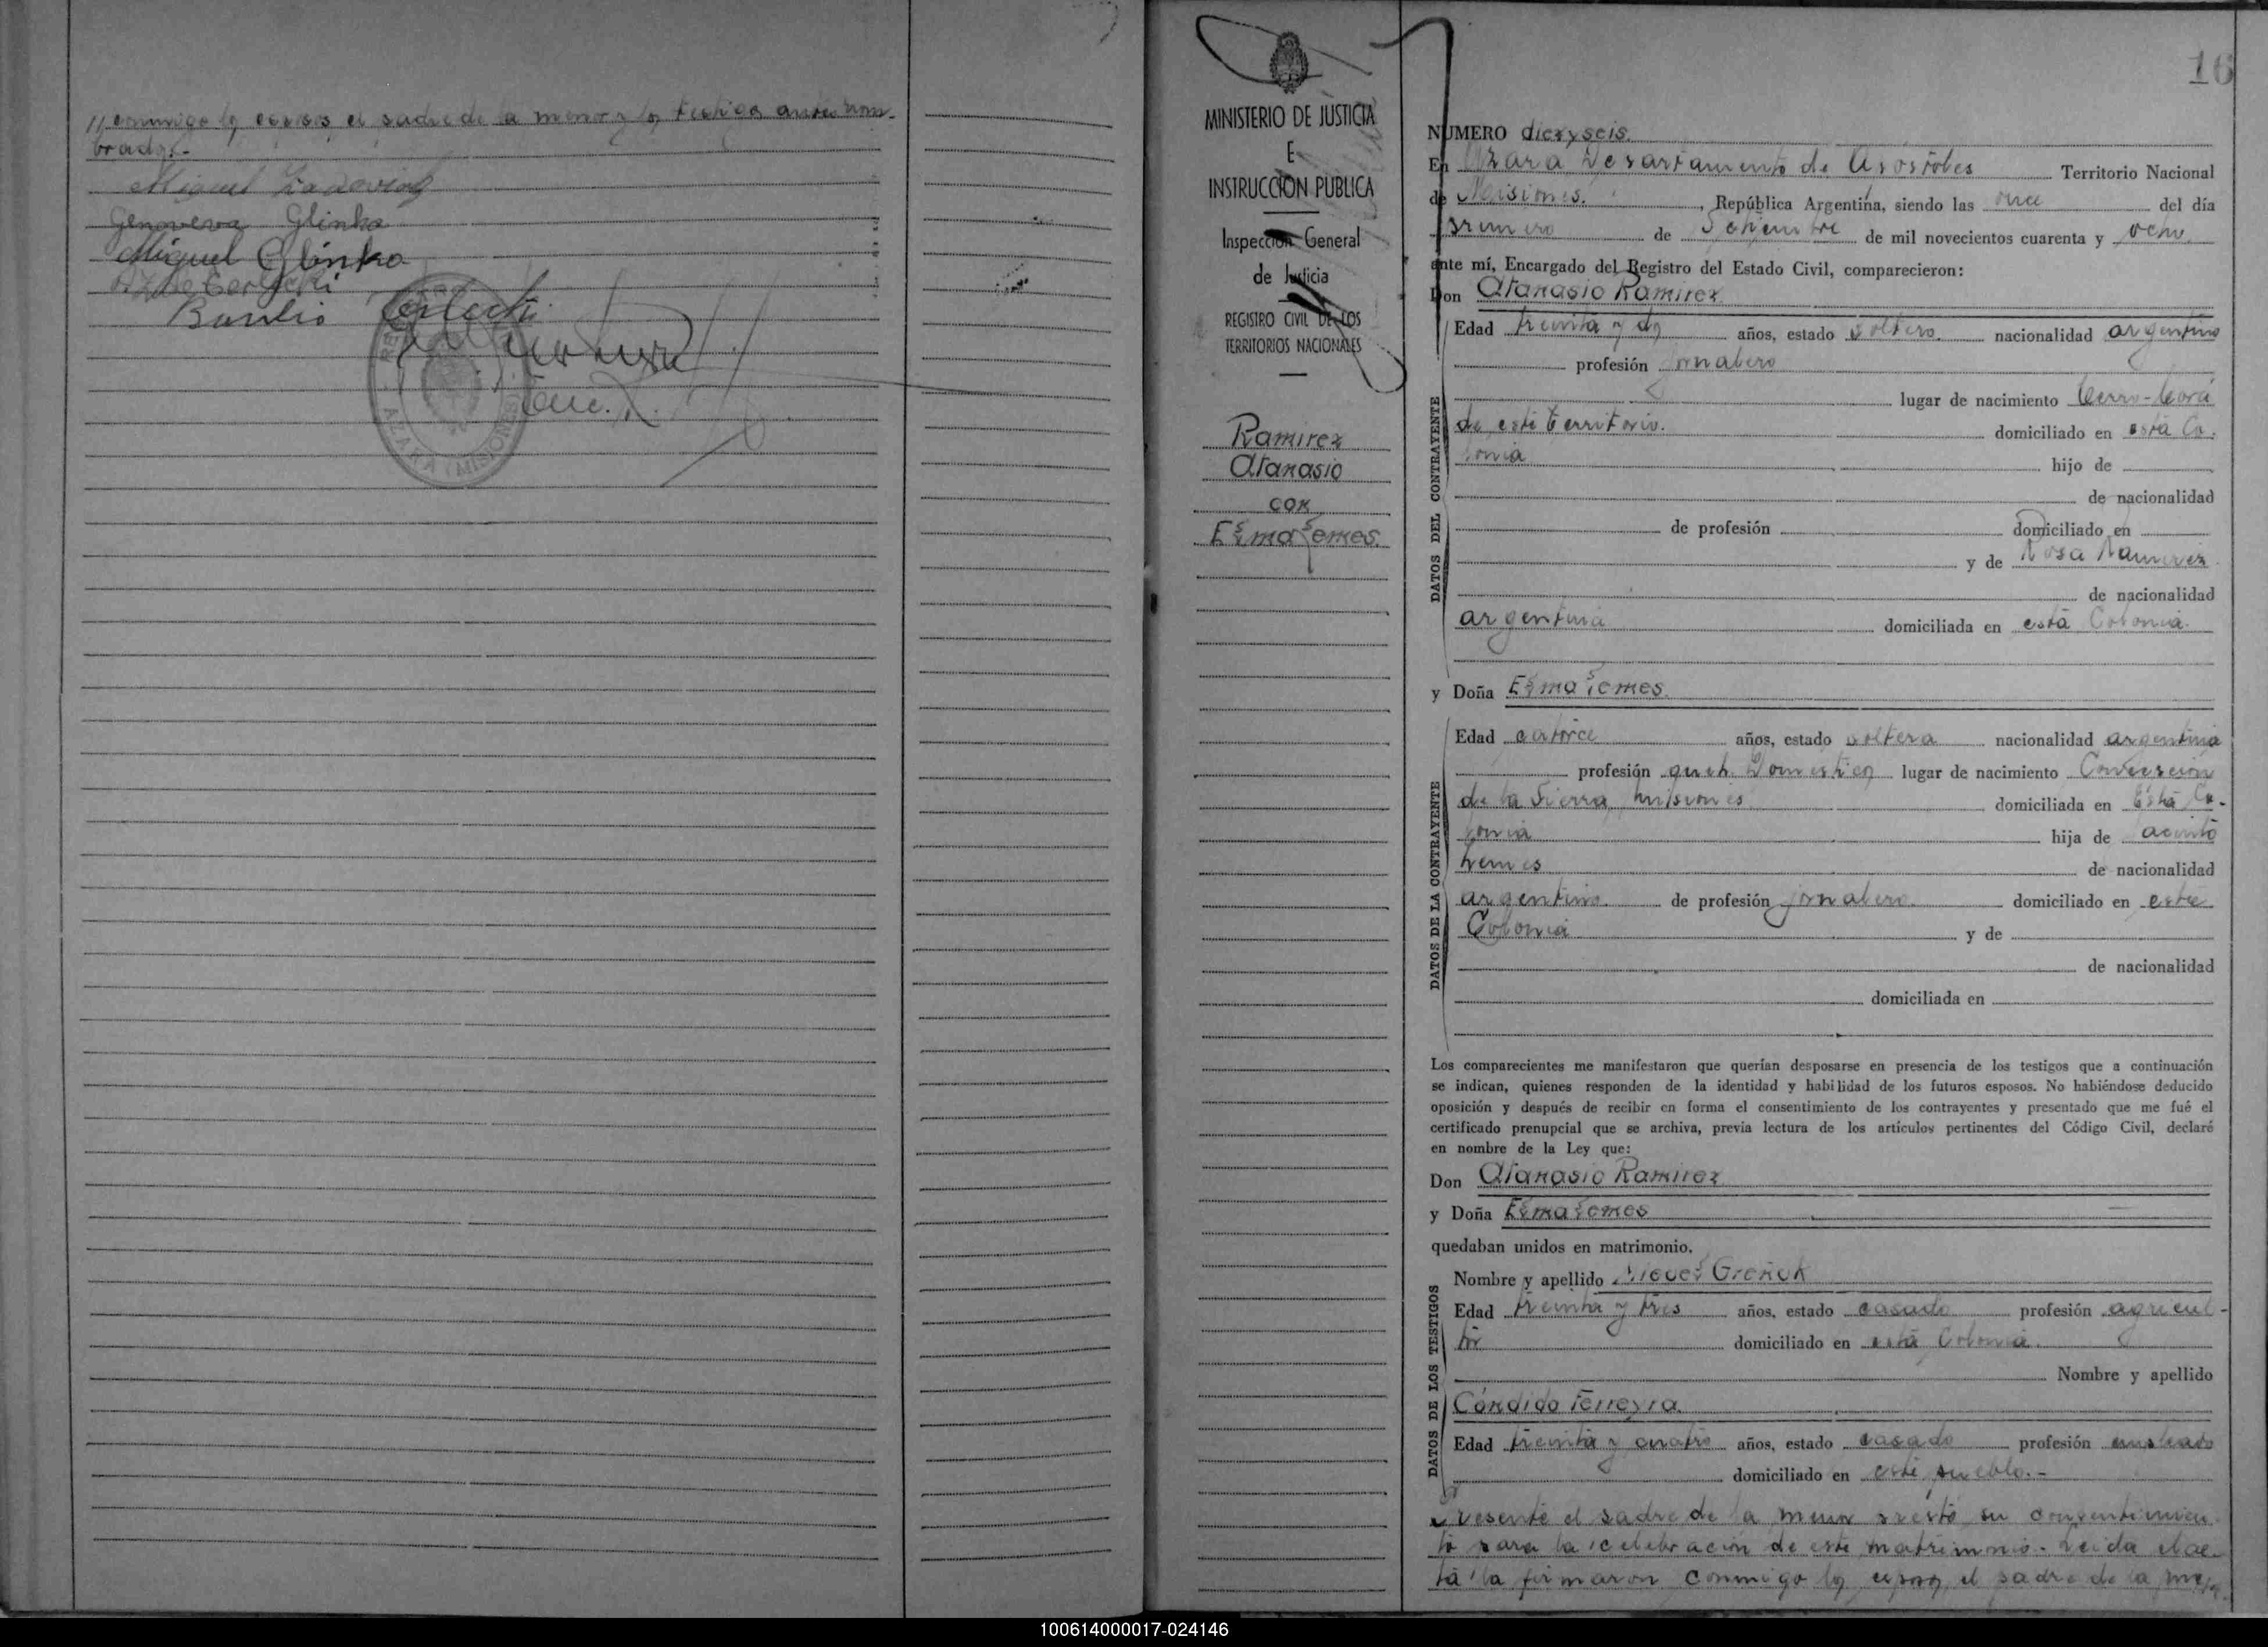 // conmigo los esposos el padre de la menor y los testigos antes nom-
brados.-
Miguel
Genoveva Glinka
Miguel Glinka
Basilio
Enc.
AZARA (MISIONES)
16
MINISTERIO DE JUSTICIA
E
INSTRUCCION PUBLICA
Inspección General
de Justicia
REGISTRO CIVIL DE LOS
TERRITORIOS NACIONALES
Ramirez
Atanasio
con
Elma Lemes.
NUMERO diez y seis.
En Azara Departamento de Apóstoles Territorio Nacional
de Misiones. , República Argentina, siendo las once del día
primero de Setiembre de mil novecientos cuarenta y ocho
ante mí, Encargado del Registro del Estado Civil, comparecieron:
Don Atanasio Ramirez
DATOS DEL CONTRAYENTE
Edad treinta y dos años, estado soltero. nacionalidad argentino
profesión jornalero
lugar de nacimiento Cerro-Corá
de este territorio. domiciliado en esta Co-
lonia hijo de
de nacionalidad
de profesión domiciliado en
y de Rosa Ramirez
de nacionalidad
argentina domiciliada en esta Colonia.
y Doña Elma Lemes.
DATOS DE LA CONTRAYENTE
Edad catorce años, estado soltera nacionalidad argentina
profesión queh. Domesticos lugar de nacimiento Concepción
de la Sierra, Misiones domiciliada en esta Co-
lonia hija de Jacinto
Lemes de nacionalidad
argentino. de profesión jornalero. domiciliado en esta
Colonia y de
de nacionalidad
domiciliada en
Los comparecientes me manifestaron que querían desposarse en presencia de los testigos que a continuación
se indican, quienes responden de la identidad y habilidad de los futuros esposos. No habiéndose deducido
oposición y después de recibir en forma el consentimiento de los contrayentes y presentado que me fué el
certificado prenupcial que se archiva, previa lectura de los artículos pertinentes del Código Civil, declaré
en nombre de la Ley que:
Don Atanasio Ramirez
y Doña Elma Lemes
quedaban unidos en matrimonio.
DATOS DE LOS TESTIGOS
Nombre y apellido Miguel Greñuk
Edad treinta y tres años, estado casado profesión agricul-
tor domiciliado en esta Colonia.
Nombre y apellido
Cándido Ferreyra
Edad treinta y cuatro años, estado casado profesión empleado
domiciliado en este pueblo.-
Presente el padre de la menor prestó su consentimien-
to para la celebración de este matrimonio.- Leida el ac-
ta la firmaron conmigo los esposos, el padre de la me//
100614000017-024146